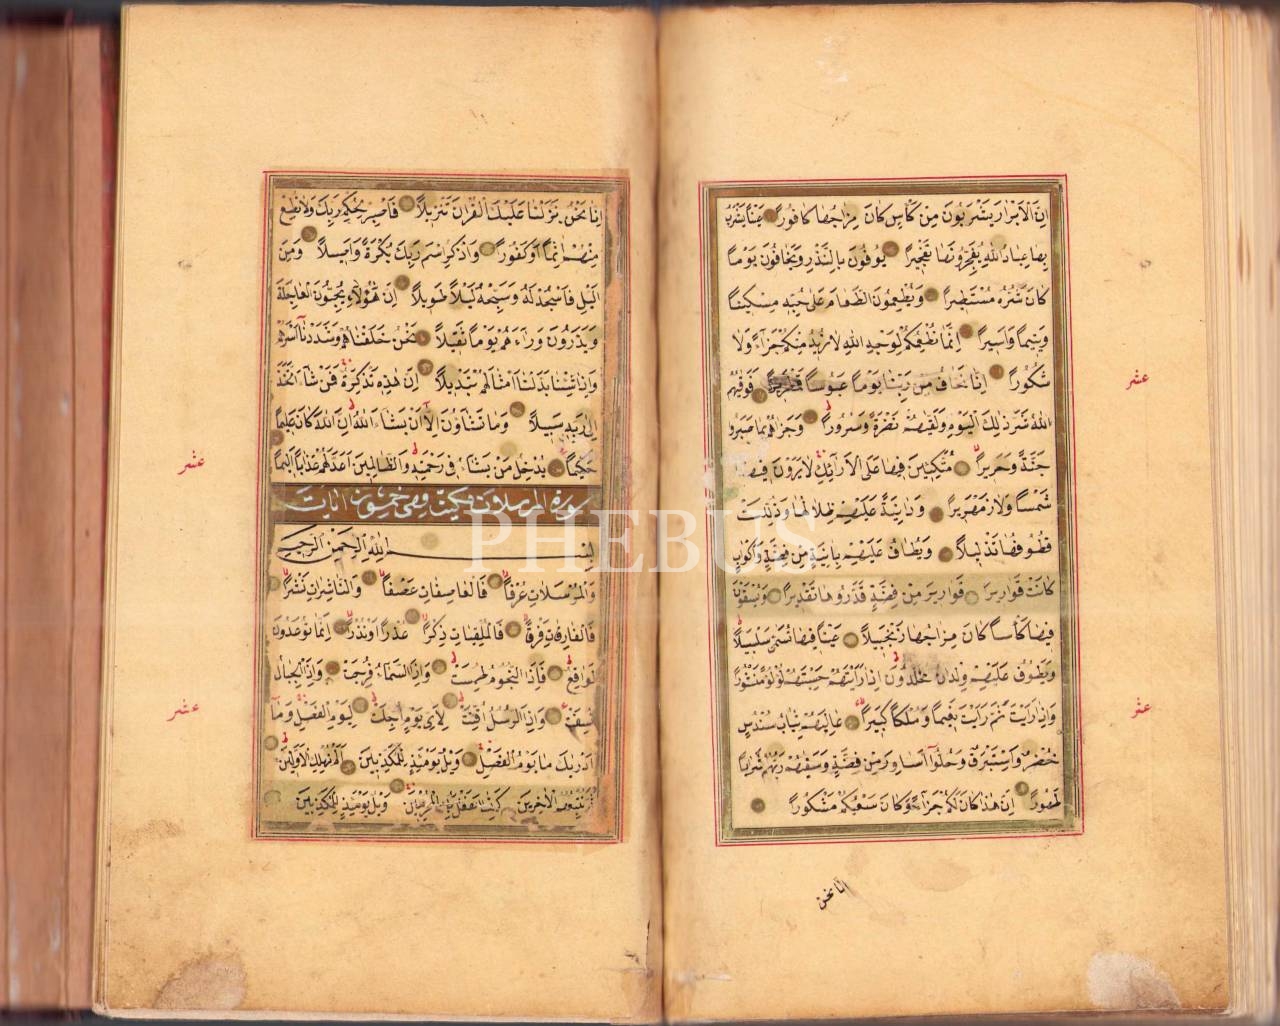 إِنَّ الْأَبْرَارَ يَشْرَبُونَ مِن كَأْسٍ كَانَ مِزَاجُهَا كَافُورًا عَيْنًا يَشْرَبُ
بِهَا عِبَادُ اللَّهِ يُفَجِّرُونَهَا تَفْجِيرًا يُوفُونَ بِالنَّذْرِ وَيَخَافُونَ يَوْمًا
كَانَ شَرُّهُ مُسْتَطِيرًا وَيُطْعِمُونَ الطَّعَامَ عَلَىٰ حُبِّهِ مِسْكِينًا
وَيَتِيمًا وَأَسِيرًا إِنَّمَا نُطْعِمُكُمْ لِوَجْهِ اللَّهِ لَا نُرِيدُ مِنكُمْ جَزَاءً وَلَا
شُكُورًا إِنَّا نَخَافُ مِن رَّبِّنَا يَوْمًا عَبُوسًا قَمْطَرِيرًا فَوَقَاهُمُ
اللَّهُ شَرَّ ذَٰلِكَ الْيَوْمِ وَلَقَّاهُمْ نَضْرَةً وَسُرُورًا وَجَزَاهُم بِمَا صَبَرُوا
جَنَّةً وَحَرِيرًا مُّتَّكِئِينَ فِيهَا عَلَى الْأَرَائِكِ لَا يَرَوْنَ فِيهَا
شَمْسًا وَلَا زَمْهَرِيرًا وَدَانِيَةً عَلَيْهِمْ ظِلَالُهَا وَذُلِّلَتْ
قُطُوفُهَا تَذْلِيلًا وَيُطَافُ عَلَيْهِم بِآنِيَةٍ مِّن فِضَّةٍ وَأَكْوَابٍ
كَانَتْ قَوَارِيرَ قَوَارِيرَ مِن فِضَّةٍ قَدَّرُوهَا تَقْدِيرًا وَيُسْقَوْنَ
فِيهَا كَأْسًا كَانَ مِزَاجُهَا زَنجَبِيلًا عَيْنًا فِيهَا تُسَمَّىٰ سَلْسَبِيلًا
وَيَطُوفُ عَلَيْهِمْ وِلْدَانٌ مُّخَلَّدُونَ إِذَا رَأَيْتَهُمْ حَسِبْتَهُمْ لُؤْلُؤًا مَّنثُورًا
وَإِذَا رَأَيْتَ ثَمَّ رَأَيْتَ نَعِيمًا وَمُلْكًا كَبِيرًا عَالِيَهُمْ ثِيَابُ سُندُسٍ
خُضْرٌ وَإِسْتَبْرَقٌ وَحُلُّوا أَسَاوِرَ مِن فِضَّةٍ وَسَقَاهُمْ رَبُّهُمْ شَرَابًا
طَهُورًا إِنَّ هَٰذَا كَانَ لَكُمْ جَزَاءً وَكَانَ سَعْيُكُم مَّشْكُورًا
انا نحن
عشر
عشر
إِنَّا نَحْنُ نَزَّلْنَا عَلَيْكَ الْقُرْآنَ تَنزِيلًا فَاصْبِرْ لِحُكْمِ رَبِّكَ وَلَا تُطِعْ
مِنْهُمْ آثِمًا أَوْ كَفُورًا وَاذْكُرِ اسْمَ رَبِّكَ بُكْرَةً وَأَصِيلًا وَمِنَ
اللَّيْلِ فَاسْجُدْ لَهُ وَسَبِّحْهُ لَيْلًا طَوِيلًا إِنَّ هَٰؤُلَاءِ يُحِبُّونَ الْعَاجِلَةَ
وَيَذَرُونَ وَرَاءَهُمْ يَوْمًا ثَقِيلًا نَّحْنُ خَلَقْنَاهُمْ وَشَدَدْنَا أَسْرَهُمْ
وَإِذَا شِئْنَا بَدَّلْنَا أَمْثَالَهُمْ تَبْدِيلًا إِنَّ هَٰذِهِ تَذْكِرَةٌ فَمَن شَاءَ اتَّخَذَ
إِلَىٰ رَبِّهِ سَبِيلًا وَمَا تَشَاءُونَ إِلَّا أَن يَشَاءَ اللَّهُ إِنَّ اللَّهَ كَانَ عَلِيمًا
حَكِيمًا يُدْخِلُ مَن يَشَاءُ فِي رَحْمَتِهِ وَالظَّالِمِينَ أَعَدَّ لَهُمْ عَذَابًا أَلِيمًا
سورة المرسلات مكية وهي خمسون آيات
بِسْمِ اللَّهِ الرَّحْمَٰنِ الرَّحِيمِ
وَالْمُرْسَلَاتِ عُرْفًا فَالْعَاصِفَاتِ عَصْفًا وَالنَّاشِرَاتِ نَشْرًا
فَالْفَارِقَاتِ فَرْقًا فَالْمُلْقِيَاتِ ذِكْرًا عُذْرًا أَوْ نُذْرًا إِنَّمَا تُوعَدُونَ
لَوَاقِعٌ فَإِذَا النُّجُومُ طُمِسَتْ وَإِذَا السَّمَاءُ فُرِجَتْ وَإِذَا الْجِبَالُ
نُسِفَتْ وَإِذَا الرُّسُلُ أُقِّتَتْ لِأَيِّ يَوْمٍ أُجِّلَتْ لِيَوْمِ الْفَصْلِ وَمَا
أَدْرَاكَ مَا يَوْمُ الْفَصْلِ وَيْلٌ يَوْمَئِذٍ لِّلْمُكَذِّبِينَ أَلَمْ نُهْلِكِ الْأَوَّلِينَ
ثُمَّ نُتْبِعُهُمُ الْآخِرِينَ كَذَٰلِكَ نَفْعَلُ بِالْمُجْرِمِينَ وَيْلٌ يَوْمَئِذٍ لِّلْمُكَذِّبِينَ
عشر
عشر
PHEBUS